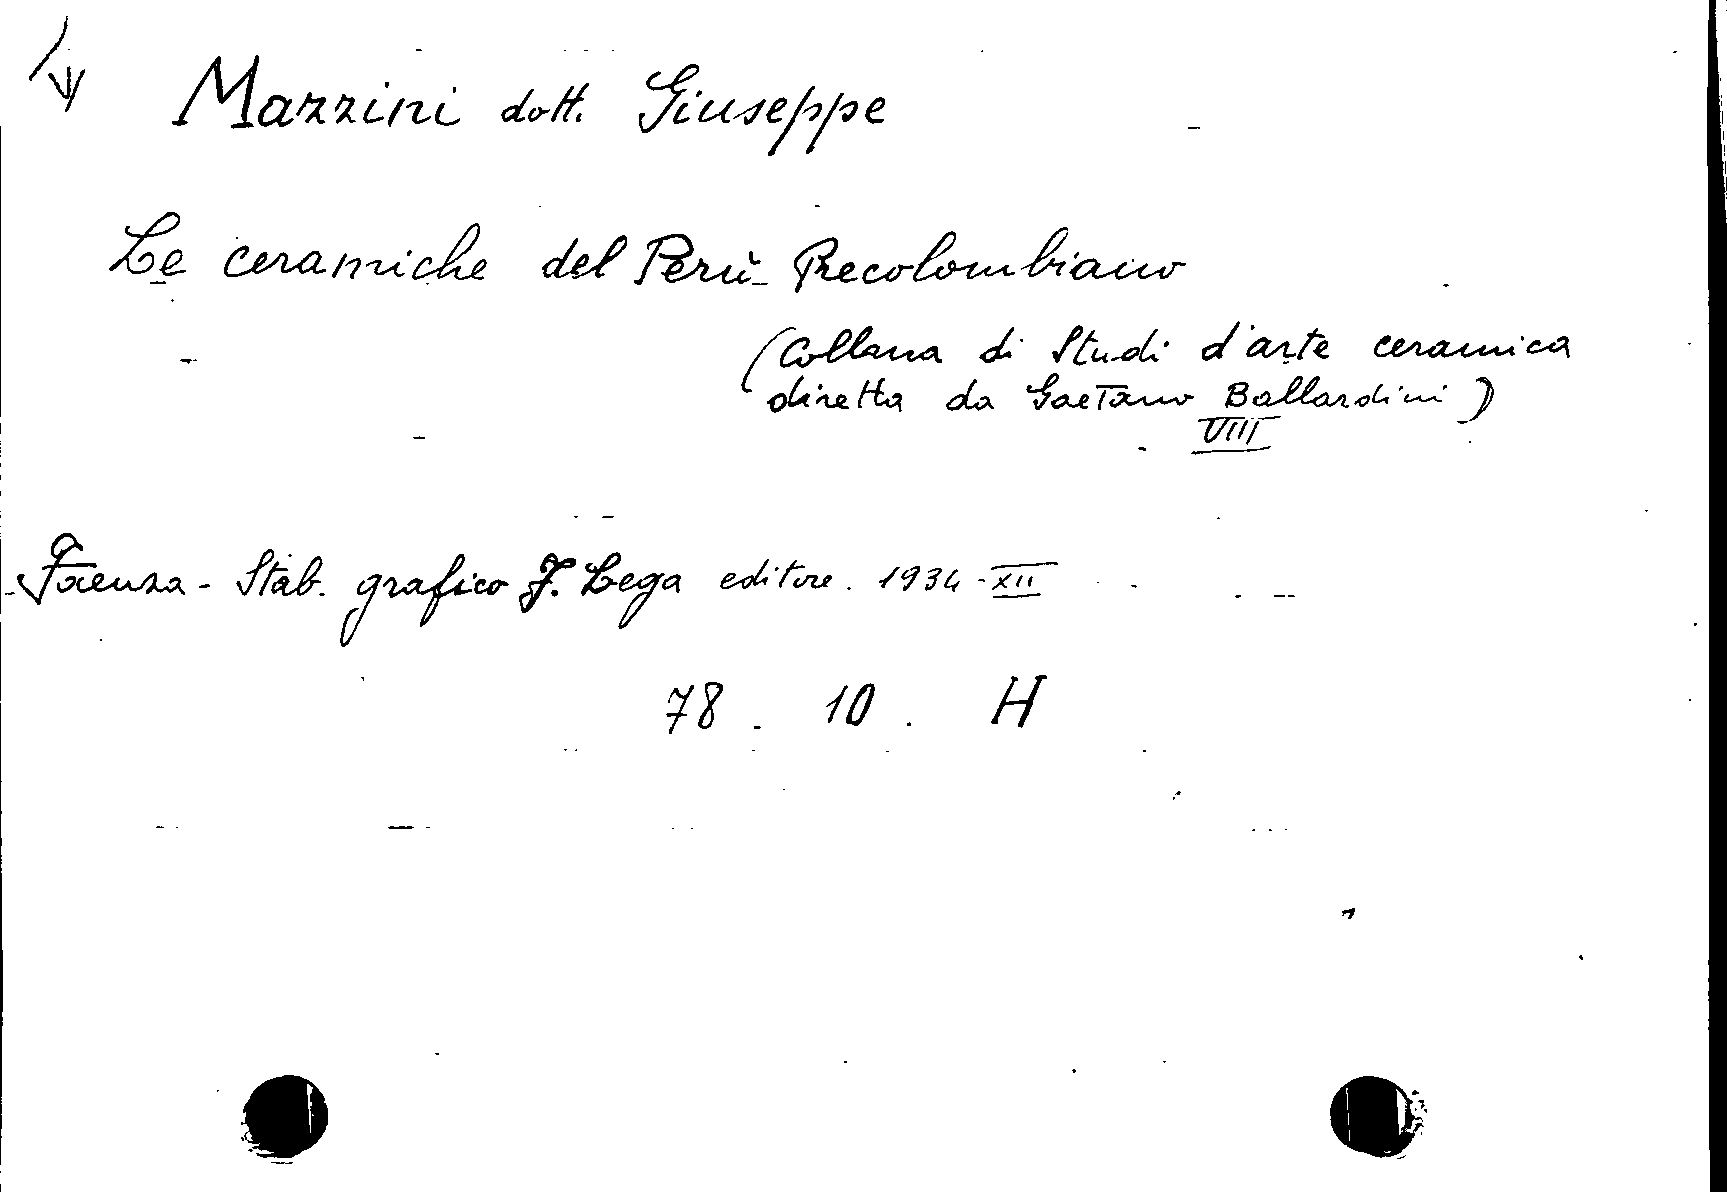 Mazzini dott. Giuseppe
Le ceramiche del Perù Precolombiano
(Collana di Studi d'arte ceramica
diretta da Gaetano Ballardini)
VIII
Faenza - Stab. grafico F. Lega editore. 1934 - XII
78 . 10 . H